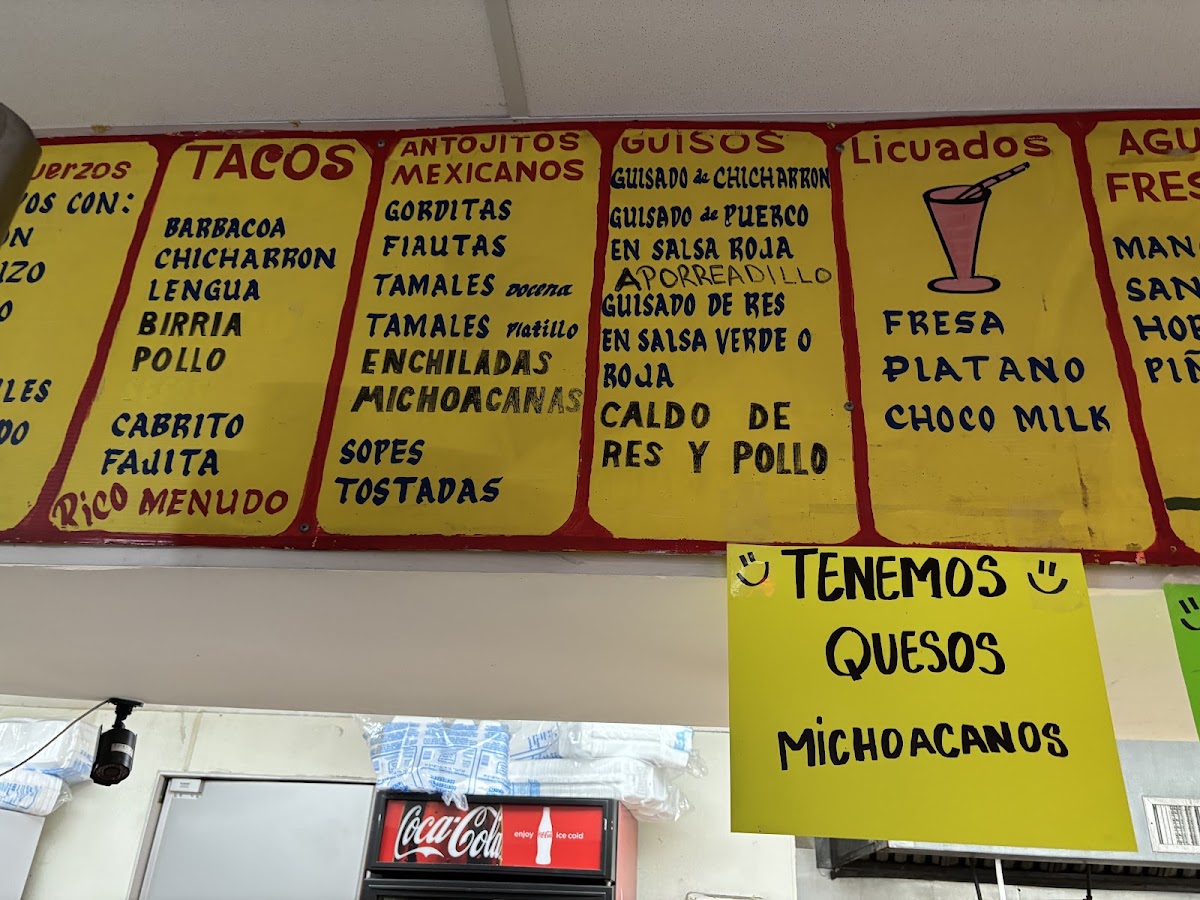 uerzos
OS CON:
TACOS
BARBACOA
CHICHARRON
LENGUA
BIRRIA
POLLO
CABRITO
FAJITA
RICO MENUDO
ANTOJITOS
MEXICANOS
GORDITAS
FLAUTAS
TAMALES DOCENA
TAMALES Platillo
ENCHILADAS
MICHOACANAS
SOPES
TOSTADAS
GUISOS
GUISADO de CHICHARRON
GUISADO de PUERCO
EN SALSA ROJA
APORREADILLO
GUISADO DE RES
EN SALSA VERDE O
ROJA
CALDO DE
RES Y POLLO
Licuados
FRESA
PLATANO
CHOCO MILK
AGU
FRES
MAN
SAN
PIÑ
TENEMOS
QUESOS
MICHOACANOS
Coca-Cola
enjoy Coca-Cola ice cold